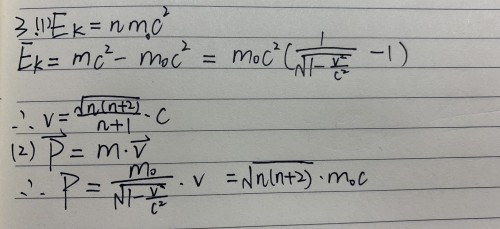 3.(1) E_K = n m₀c²
E_K = mc² - m₀c² = m₀c² ( \frac{1}{\sqrt{1-\frac{v²}{c²}}} - 1 )
∴ v = \frac{\sqrt{n(n+2)}}{n+1} · c
(2) \vec{P} = m · \vec{v}
∴ P = \frac{m₀}{\sqrt{1-\frac{v²}{c²}}} · v = \sqrt{n(n+2)} · m₀c